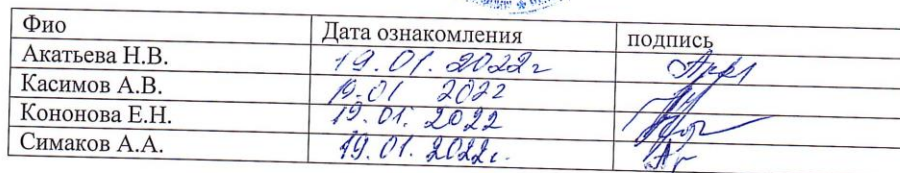 Фио Дата ознакомления подпись
Акатьева Н.В. 19.01.2022г
Касимов А.В. 19.01 2022
Кононова Е.Н. 19.01.2022
Симаков А.А. 19.01.2022г.